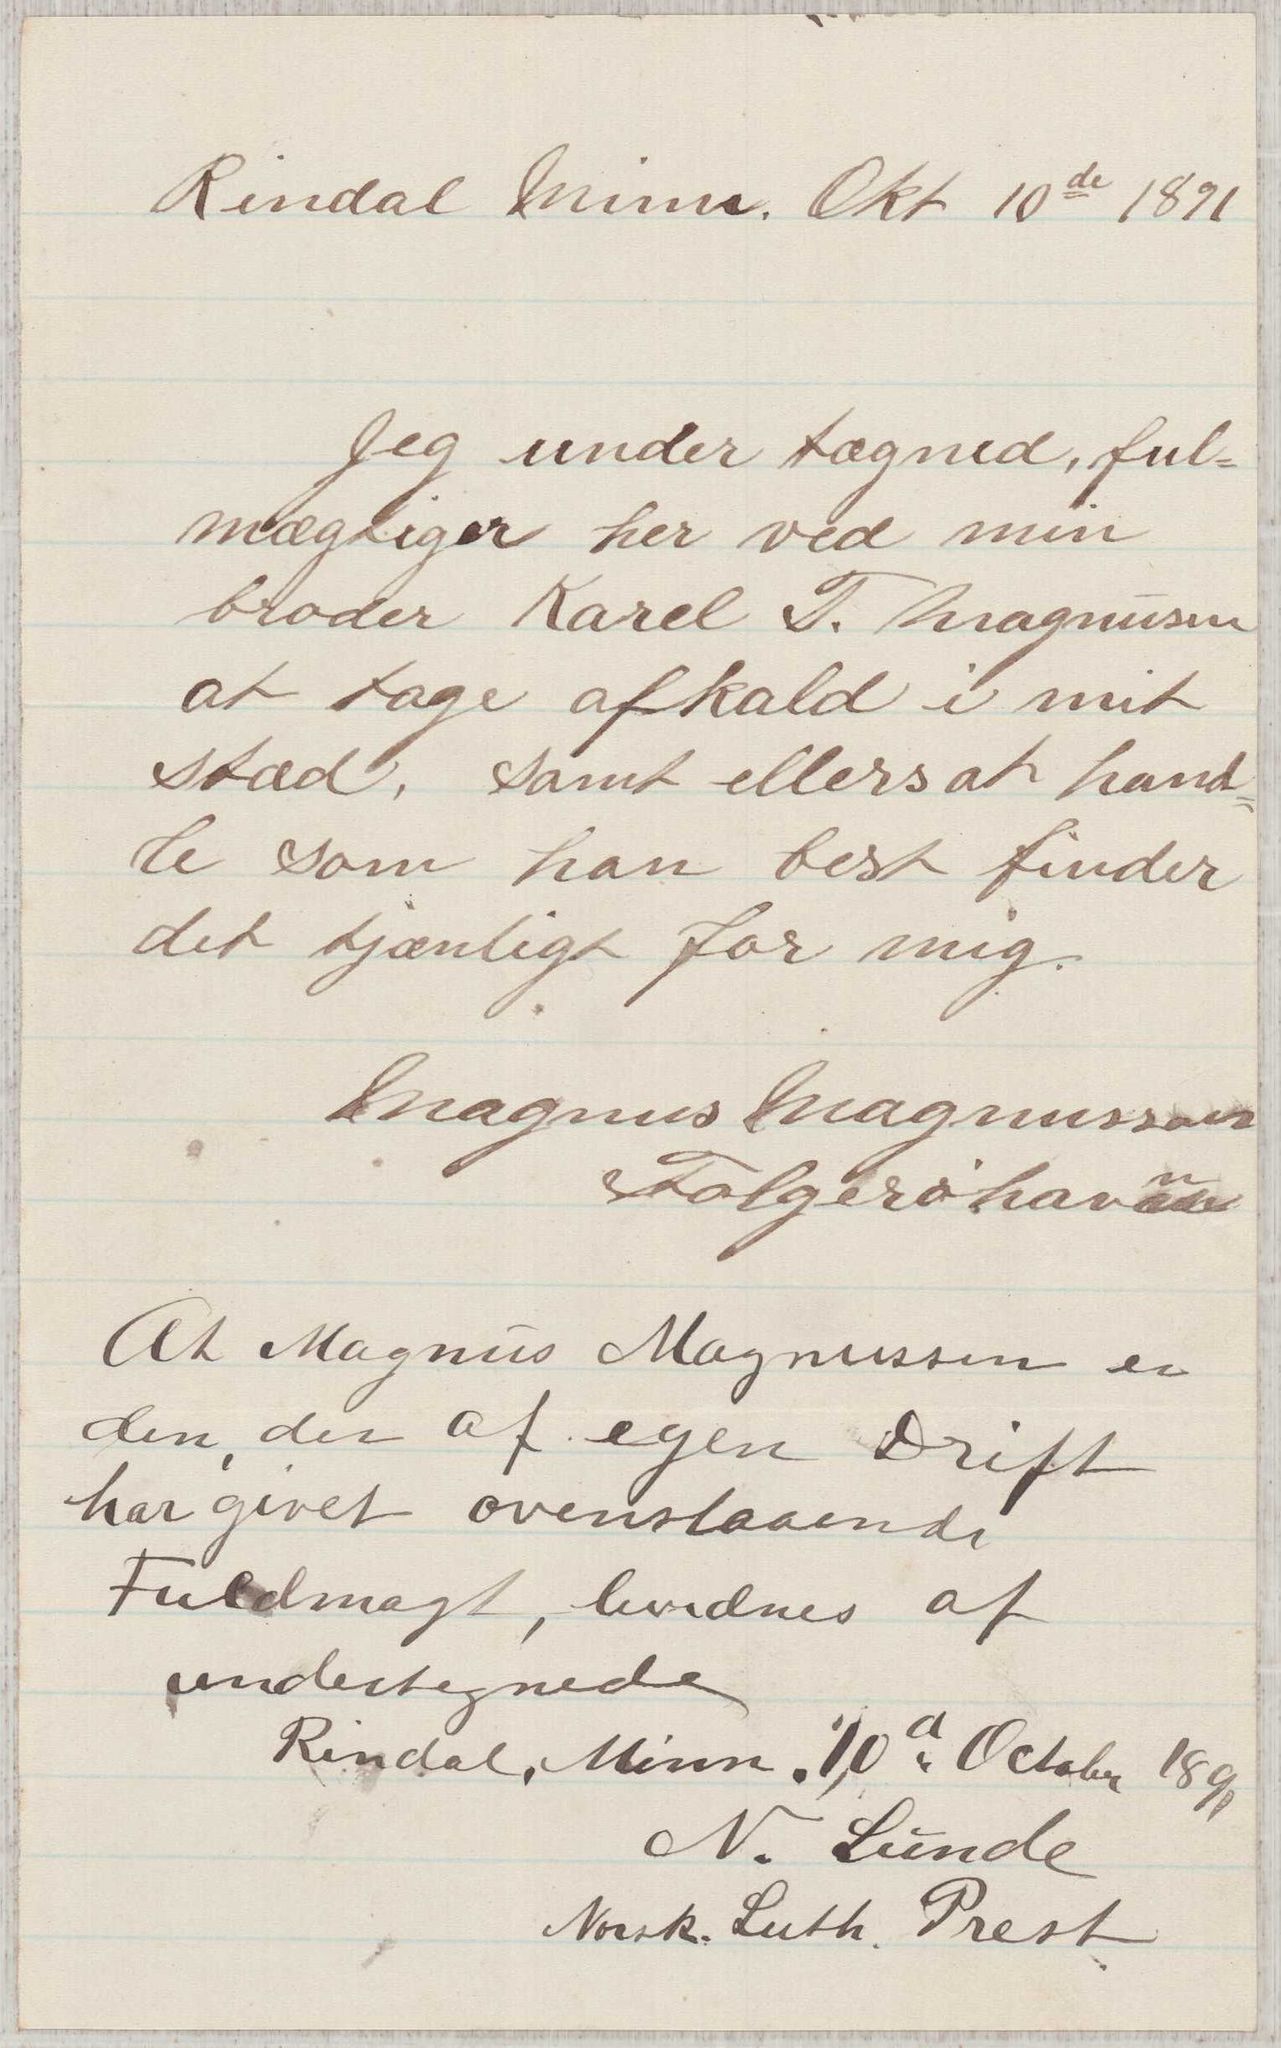 Rindal Minn. Okt 10de 1891
Jeg under tægned, ful=
mægtiger her ved min
broder Karel T. Magnusen
at tage afkald i mit
stæd, samt ellers at hand=
le som han best finder
det tjænligt for mig.
Magnus Magnussen
Folgerøhavn
At Magnus Magnussen er
den, der af egen Drift
har givet ovenstaaende
Fuldmagt, bevidnes af
undertegnede
Rindal, Minn. 10d October 1891
N. Lunde
Norsk. Luth. Prest